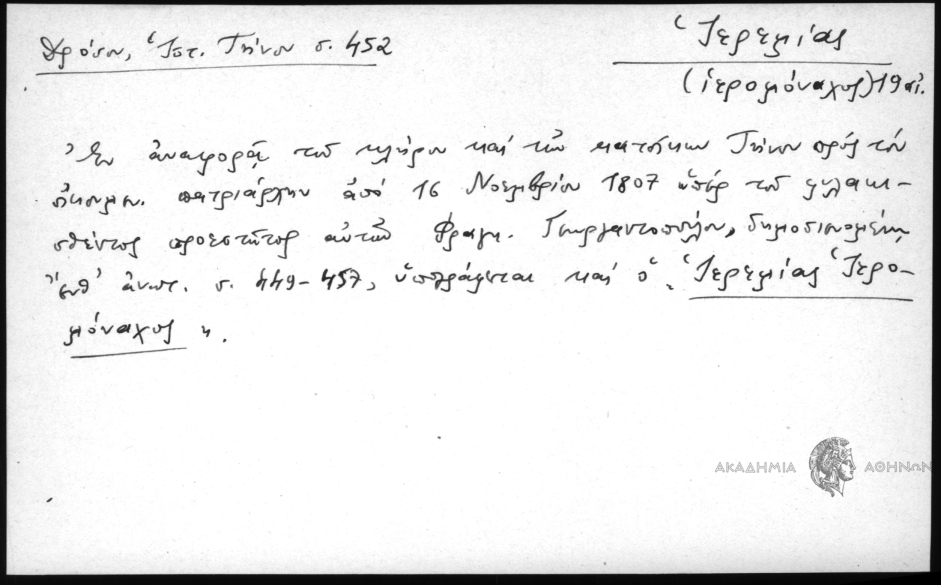 Δρόσου, Ἱστ. Τήνου σ. 452
Ἱερεμίας
(ἱερομόναχος) 19 αἰ.
Ἐν ἀναφορᾷ τοῦ κλήρου καὶ τῶν κατοίκων Τήνου πρὸς τὸν
οἰκουμ. πατριάρχην ἀπὸ 16 Νοεμβρίου 1807 ὑπὲρ τοῦ φυλακι-
σθέντος προεστῶτος αὐτῶν Φραγκ. Γεωργαντοπούλου, δημοσιευομένῃ
ἔνθ' ἀνωτ. σ. 449-457, ὑπογράφεται καὶ ὁ „Ἱερεμίας Ἱερο-
μόναχος".
ΑΚΑΔΗΜΙΑ ΑΘΗΝΩΝ